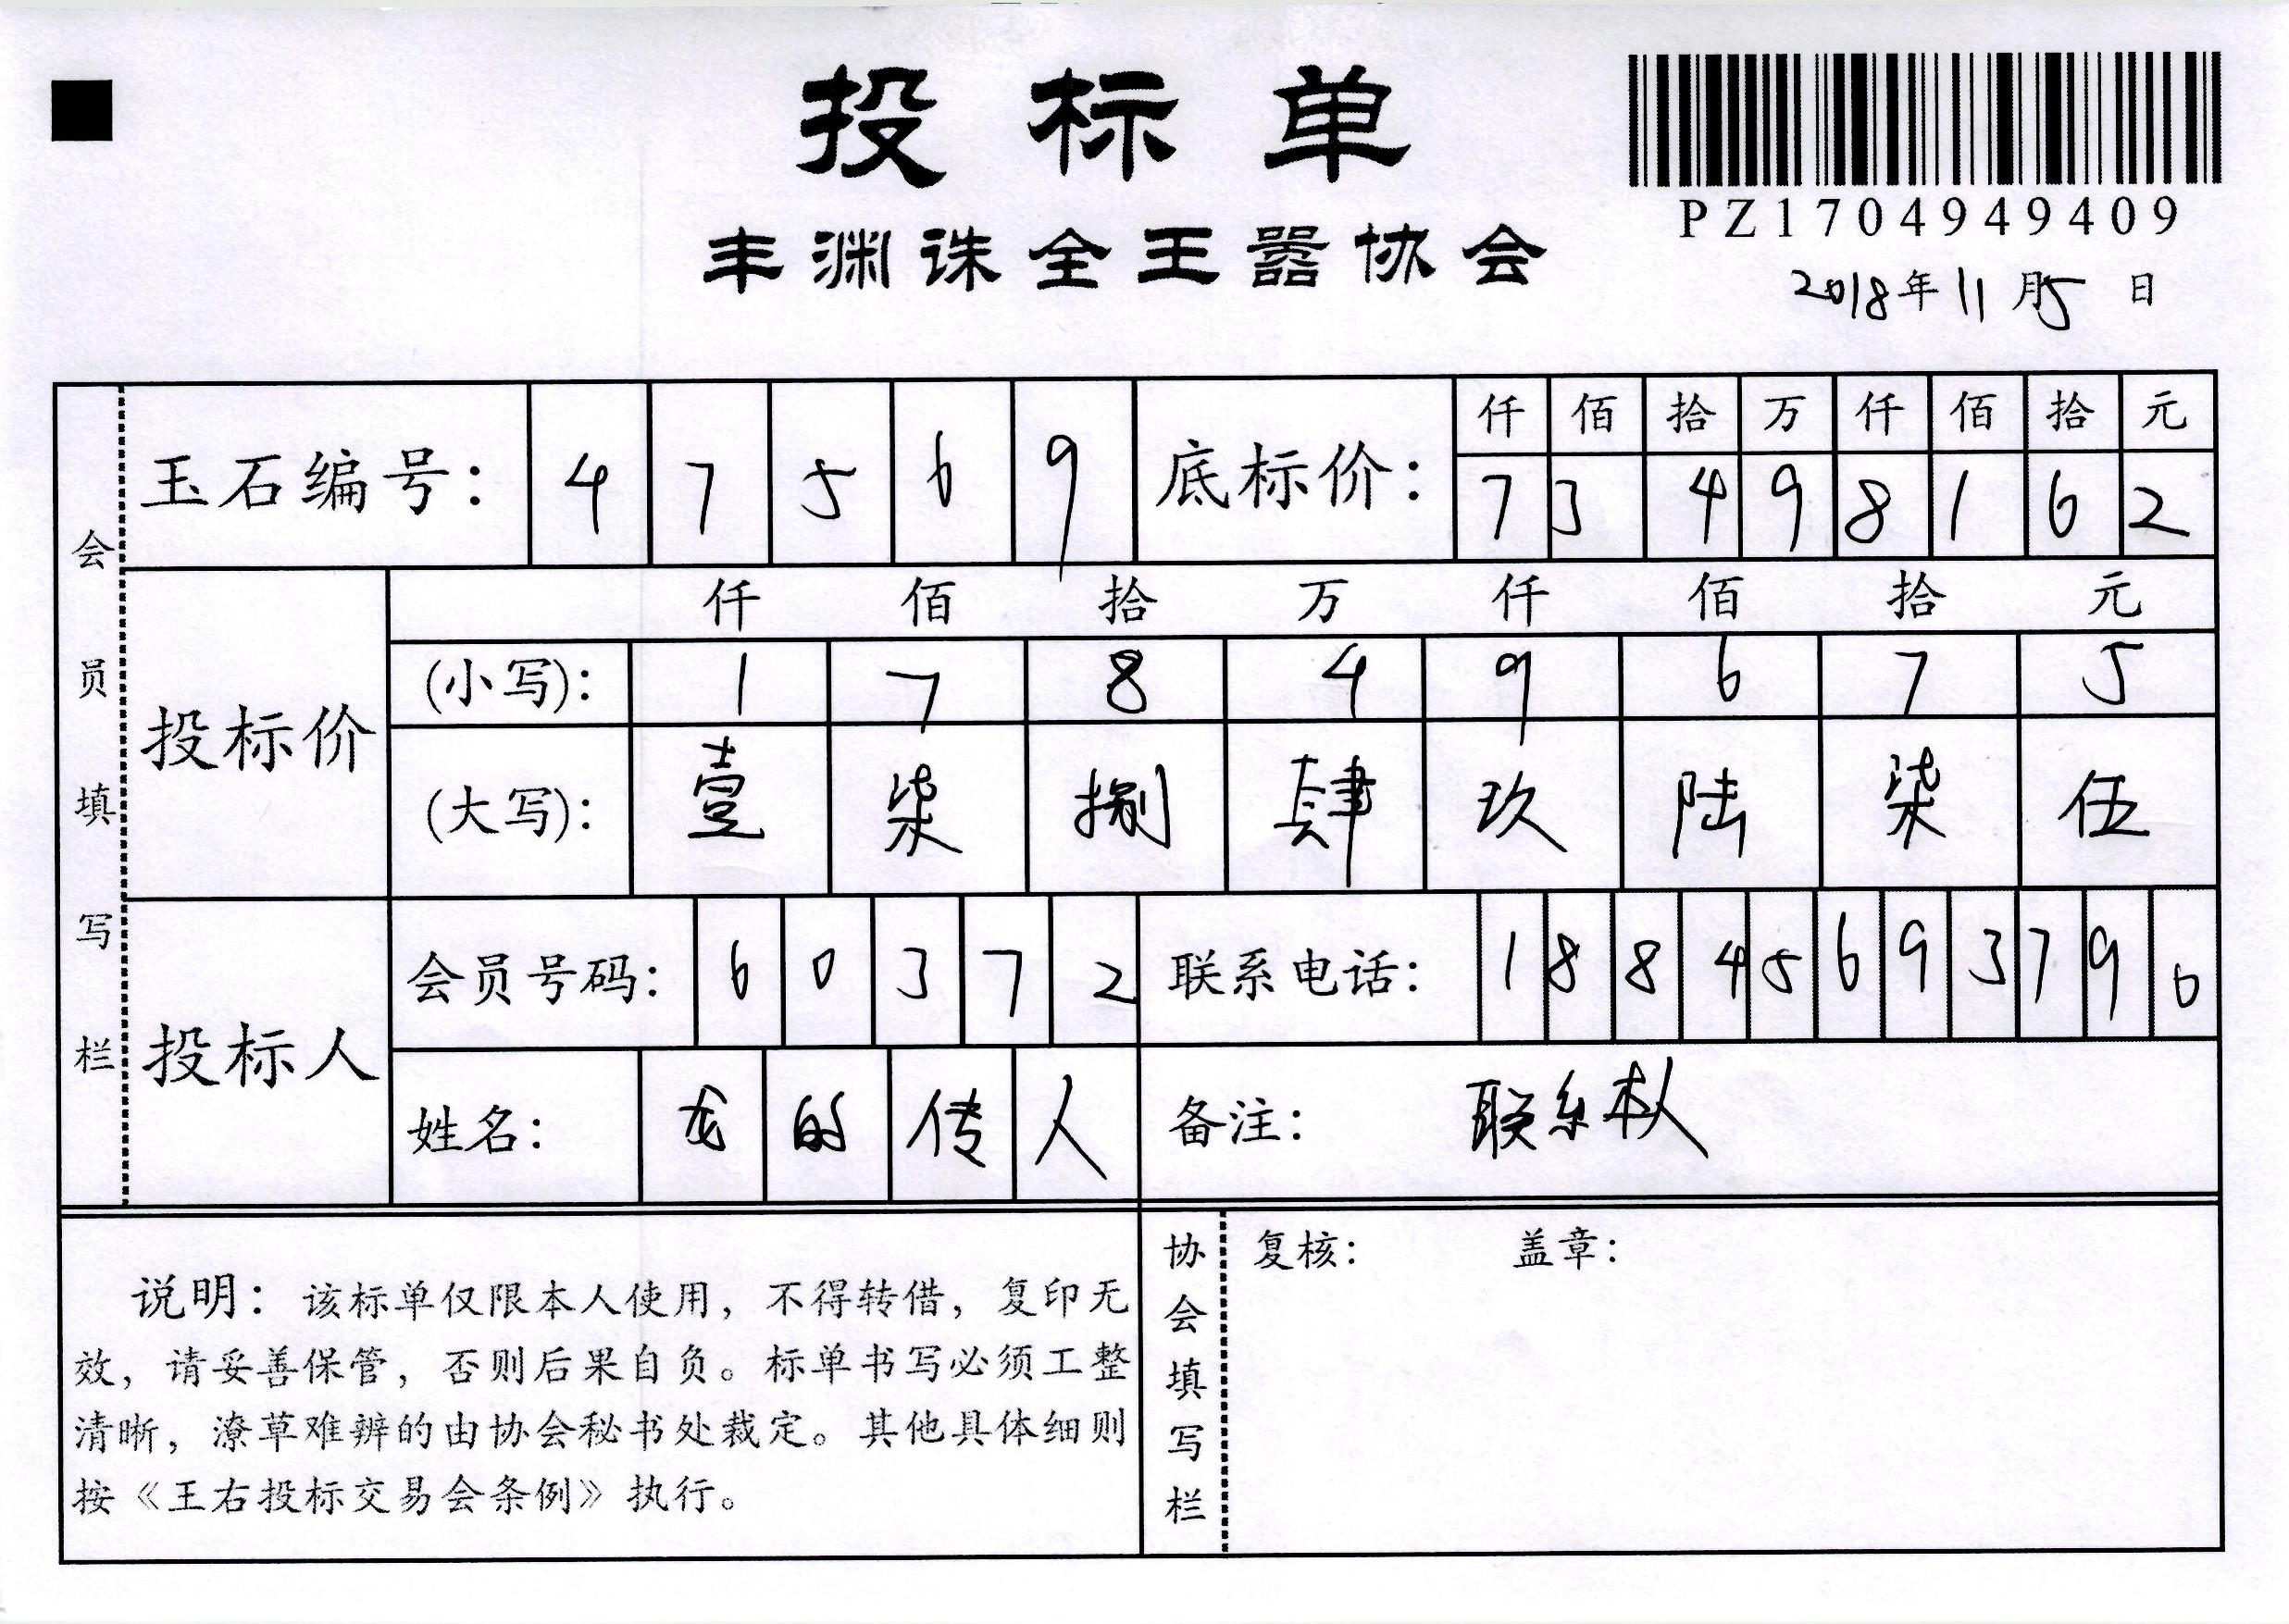 投标单
丰渊诛全王嚣协会
PZ1704949409
2018年11月5日
会员填写栏
玉石编号: 4 7 5 6 9
底标价: 仟 佰 拾 万 仟 佰 拾 元
7 3 4 9 8 1 6 2
投标价
仟 佰 拾 万 仟 佰 拾 元
(小写): 1 7 8 4 9 6 7 5
(大写): 壹 柒 捌 肆 玖 陆 柒 伍
投标人
会员号码: 6 0 3 7 2
联系电话: 1 8 8 4 5 6 9 3 7 9 6
姓名: 龙 的 传 人
备注: 联系本人
说明: 该标单仅限本人使用, 不得转借, 复印无
效, 请妥善保管, 否则后果自负。标单书写必须工整
清晰, 潦草难辨的由协会秘书处裁定。其他具体细则
按《王右投标交易会条例》执行。
协会填写栏
复核: 盖章: